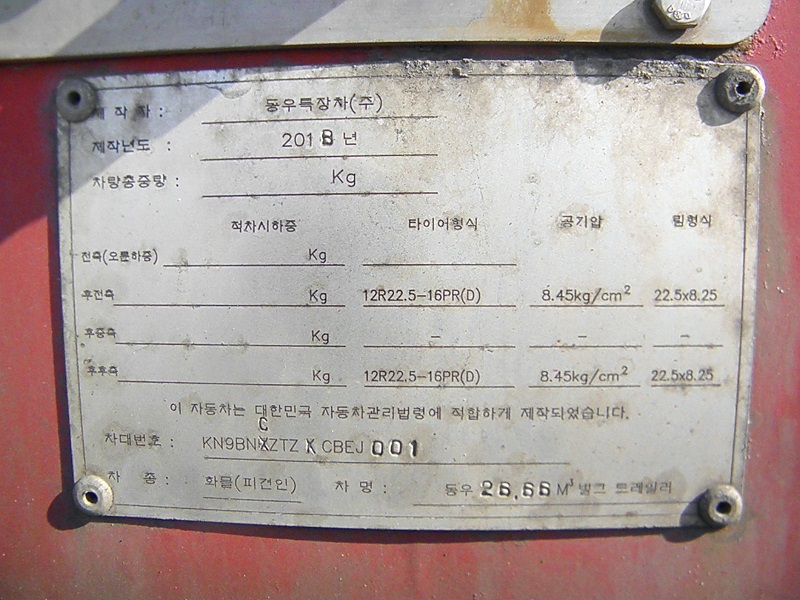 제 작 자 : 동우특장차(주)
제작년도 : 2018 년
차량총중량 : Kg
적차시하중 타이어형식 공기압 림형식
전축(오륜하중) Kg
후전축 Kg 12R22.5-16PR(D) 8.45kg/cm² 22.5x8.25
후중축 Kg - - -
후후축 Kg 12R22.5-16PR(D) 8.45kg/cm² 22.5x8.25
이 자동차는 대한민국 자동차관리법령에 적합하게 제작되었습니다.
C
차대번호 : KN9BNXZTZ K CBEJ 001
차 종 : 화물(피견인) 차 명 : 동우 26.66 M³ 벌크 트레일러